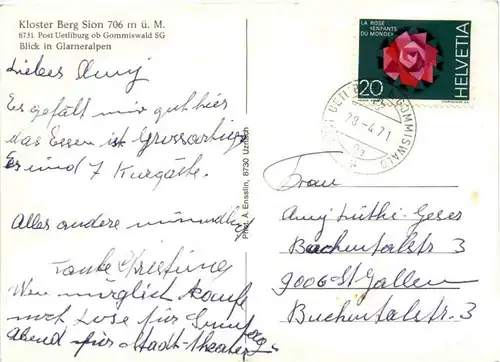 Kloster Berg Sion 706 m ü. M.
8731 Post Uetliburg ob Gommiswald SG
Blick in Glarneralpen
Liebes Amy
Es gefällt mir gut hier
das Essen ist Grossartig
Es sind 7 Kurgäste.
Alles andere mündlich
Tante Christina
Wen möglich kaufe
noch Lose für
Abend für Stadt-Theater
Phot. A. Ensslin, 8730 Uznach
LA ROSE
«ENFANTS
DU MONDE»
20
HELVETIA
GOMMISWALD
Frau
Amy Lüthi-Geser
Buchentalstr 3
9006 St Gallen
Buchentalstr. 3